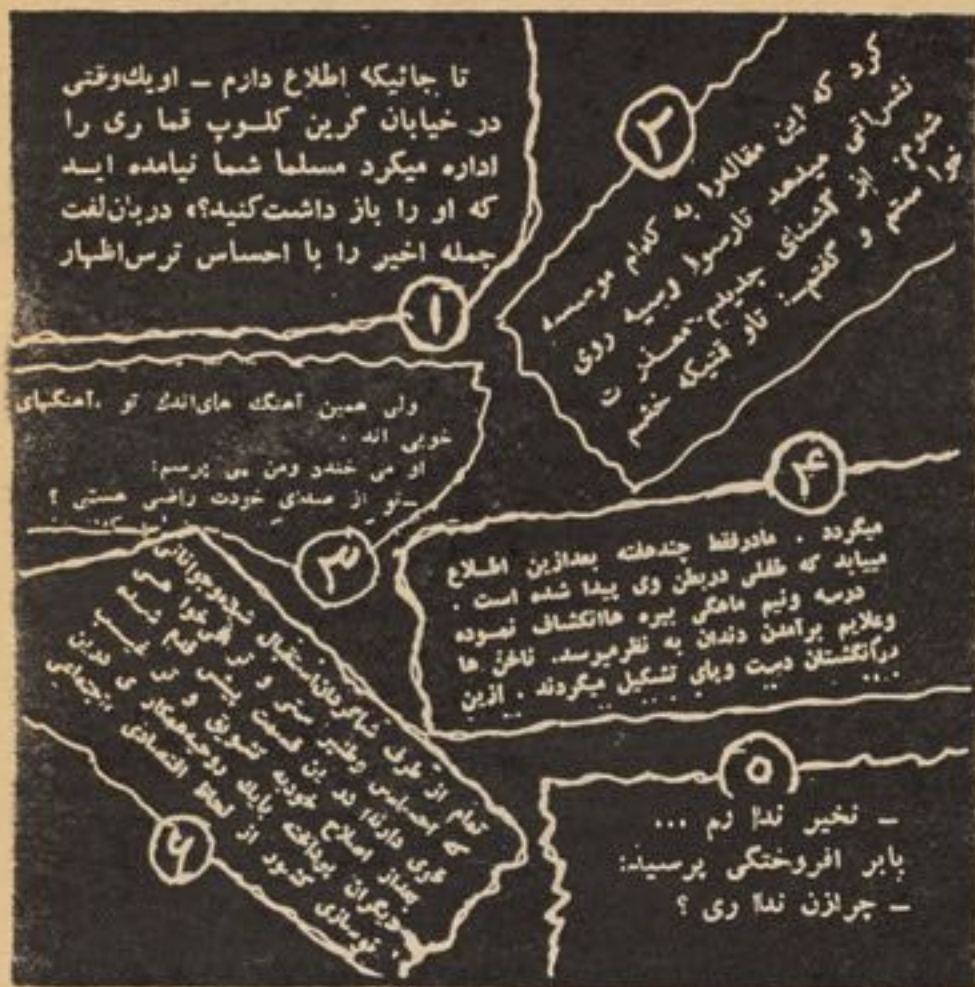 تا جائیکه اطلاع دارم – اویك‌وقتی
در خیابان گرین كلـوپ قما ری را
اداره میکرد مسلما شما نیامده ایـد
که او را باز داشت‌کنید؟» دربان‌لفت
جمله اخیر را با احساس ترس‌اظهار
۱
کرد که این مقاله‌را به کدام موسسه
نشراتی میدهد تارسوا وسیه روی
شوم. از آشنای جدیدم معذر ت
خوا ستم و گفتم: تاو قتیکه خشم
۲
ولی همین آهنگ های‌اندك تو ،آهنگهای
خوبی اند .
او می خندد ومن می پرسم:
–تو از صدای خودت راضی هستی ؟
۳
۴
میگردد . مادرفقط چندهفته بعدازین اطـلاع
مییابد که طفلی دربطن وی پیدا شده است .
درسه ونیم ماهگی بیره هاانکشاف نمـوده
وعلایم برآمدن دندان به نظرمیرسد. ناخن ها
درانگشتان دست وپای تشکیل میگردند . ازین
۵
– نخیر ندا رم ...
بابر افروختگی پرسید:
– چرازن ندا ری ؟
تمام از طرف شاگردان‌استقبال شده‌وجوانانی
که احساس وطنپر ستی و تر قی خوا هی
دری دارند در ین قسمت پیش قدم شده
بعداز اصلاح خودبه تشویق و تر غیب
دیگران پرداخته بایك روحیه‌همکار ی درین
نوسازی کشور از لحاظ اقتصادی
۶